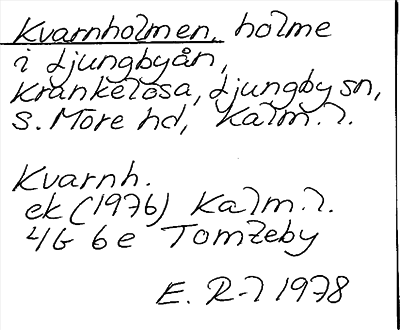 Kvarnholmen, holme
i Ljungbyån,
Krankelösa, Ljungby sn,
S. Möre hd, Kalm. l.
Kvarnh.
ek (1976) Kalm. l.
4G 6e Tomteby
E. R-l 1978